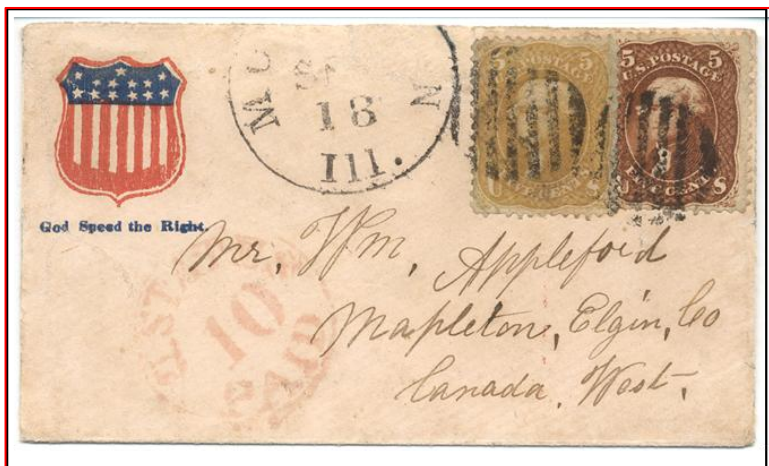 18
Ill.
5 5
U.S. POSTAGE
5 5
U.S. POSTAGE
FIVE CENTS
God Speed the Right.
Mr. Wm. Appleford
Mapleton, Elgin, Co
Canada, West.
10
PAID